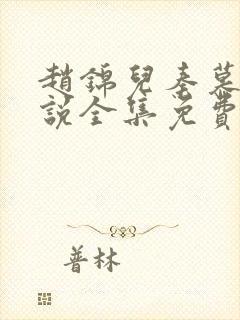 趙錦兒秦慕
說全集免費
普林